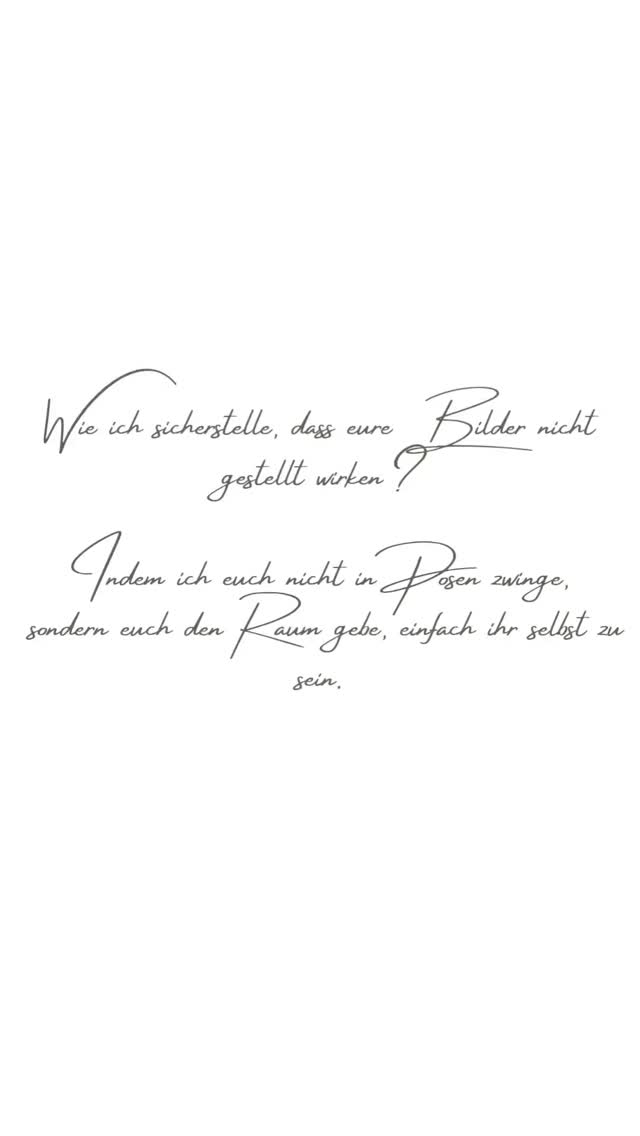 Wie ich sicherstelle, dass eure Bilder nicht
gestellt wirken?
Indem ich euch nicht in Posen zwinge,
sondern euch den Raum gebe, einfach ihr selbst zu
sein.